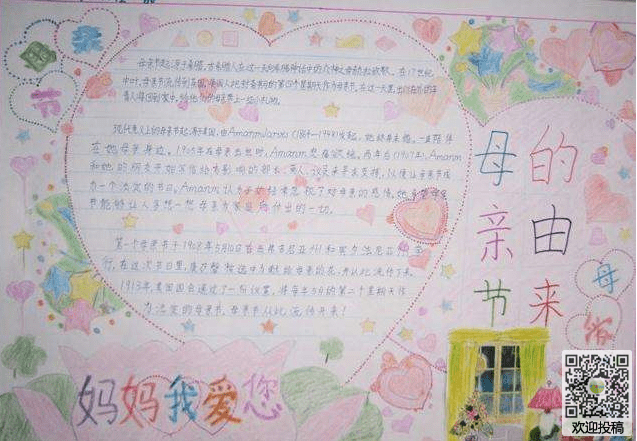 母亲节
母亲节起源于希腊,古希腊人在这一天
中叶,母亲节流传到英国,英国人把封斋期的第四个星期天作为母亲节,在这一天里,出门在外的年
青人将回到家中,给他们的母亲带上一些小礼物。
现代意义上的母亲节起源于美国,由
她母亲身边。1905年在母亲去世时,Amanm悲痛欲绝。两年后(1907年),Amanm
和她的朋友开始写信给有影响的部长、商人、议员来寻求支持,以便让母亲节成
为一个法定的节日。Amanm认为子女经常忽视了对母亲的感情,她希望母亲
节能够让人多想一想母亲为家庭所付出的一切。
第一个母亲节于1908年5月10日在西弗吉尼亚州和宾夕法尼亚州举
行,在这次节日里,康乃馨被选中为献给母亲的花,并从此流传下来
1913年,美国国会通过了一份议案,将每年5月的第二个星期天作
为法定的母亲节,母亲节从此流传开来!
母亲节
的由来
母爷
妈妈我爱您
欢迎投稿